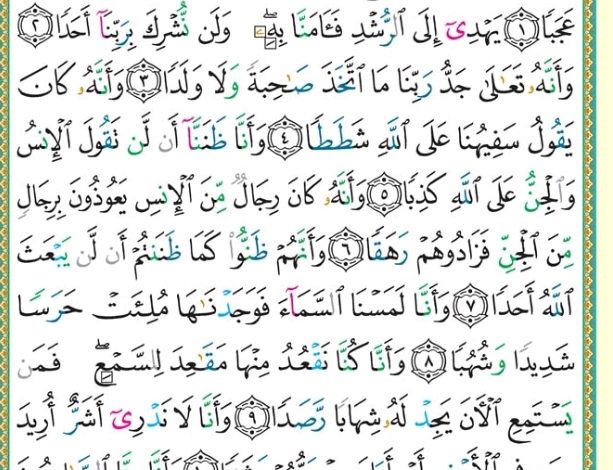 عَجَبًا ۝١ يَهْدِىٓ إِلَى ٱلرُّشْدِ فَـَٔامَنَّا بِهِۦ ۖ وَلَن نُّشْرِكَ بِرَبِّنَآ أَحَدًا ۝٢
وَأَنَّهُۥ تَعَـٰلَىٰ جَدُّ رَبِّنَا مَا ٱتَّخَذَ صَـٰحِبَةً وَلَا وَلَدًا ۝٣ وَأَنَّهُۥ كَانَ
يَقُولُ سَفِيهُنَا عَلَى ٱللَّهِ شَطَطًا ۝٤ وَأَنَّا ظَنَنَّآ أَن لَّن تَقُولَ ٱلْإِنسُ
وَٱلْجِنُّ عَلَى ٱللَّهِ كَذِبًا ۝٥ وَأَنَّهُۥ كَانَ رِجَالٌ مِّنَ ٱلْإِنسِ يَعُوذُونَ بِرِجَالٍ
مِّنَ ٱلْجِنِّ فَزَادُوهُمْ رَهَقًا ۝٦ وَأَنَّهُمْ ظَنُّوا۟ كَمَا ظَنَنتُمْ أَن لَّن يَبْعَثَ
ٱللَّهُ أَحَدًا ۝٧ وَأَنَّا لَمَسْنَا ٱلسَّمَآءَ فَوَجَدْنَـٰهَا مُلِئَتْ حَرَسًا
شَدِيدًا وَشُهُبًا ۝٨ وَأَنَّا كُنَّا نَقْعُدُ مِنْهَا مَقَـٰعِدَ لِلسَّمْعِ ۖ فَمَن
يَسْتَمِعِ ٱلْـَٔانَ يَجِدْ لَهُۥ شِهَابًا رَّصَدًا ۝٩ وَأَنَّا لَا نَدْرِىٓ أَشَرٌّ أُرِيدَ